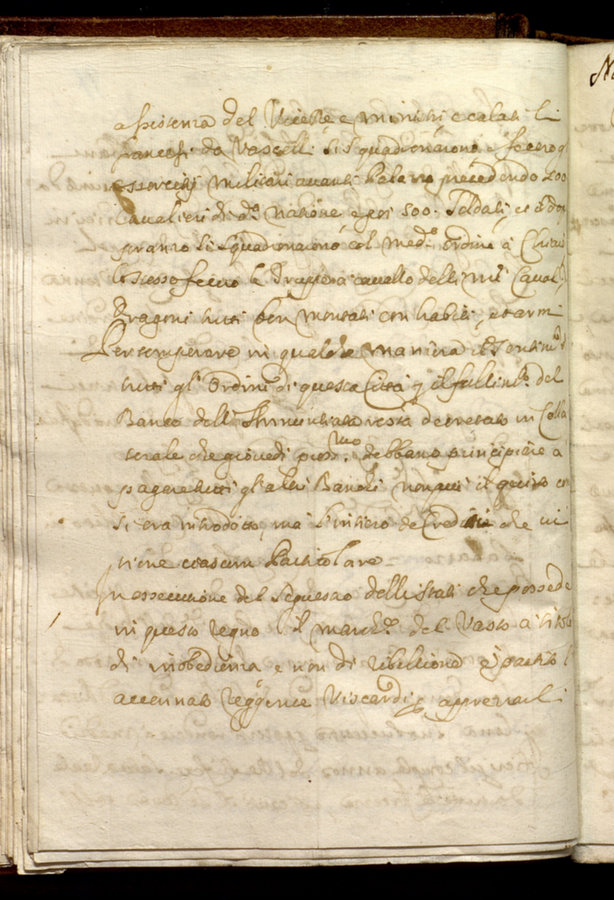 assistenza del Vicerè e Ministri e calati li
francesi da Vascelli si squadronarono e fecero q
essercitij militari avanti Palazzo precedendo 200
Cavalieri di dª natione e poi 500: Soldati, e dop
pranzo si squadronarono col medº ordine a Chiaia
lo stesso fecero la Dragoni a cavallo delli
Dragoni tutti ben montati con habiti, et armi
Per temperare in qualche maniera il
tutti gl'ordini di questa Città p il fallimtº del
Banco dell'Annuntiata resta decretato in Colla
terale che giovedi prossimo debbano principiare a
pagare tutti gl'altri Banchi non più il quinto co
si era introdotto, ma l'intiero de Crediti che vi
tiene ciascun Particolare
In essecutione del sequestro delli Stati che possede
in questo regno il Marchº del Vasto a titolo
di inobedienza e non di ribellione è partito l
accennato Reggente Viscardi p apprezzarli